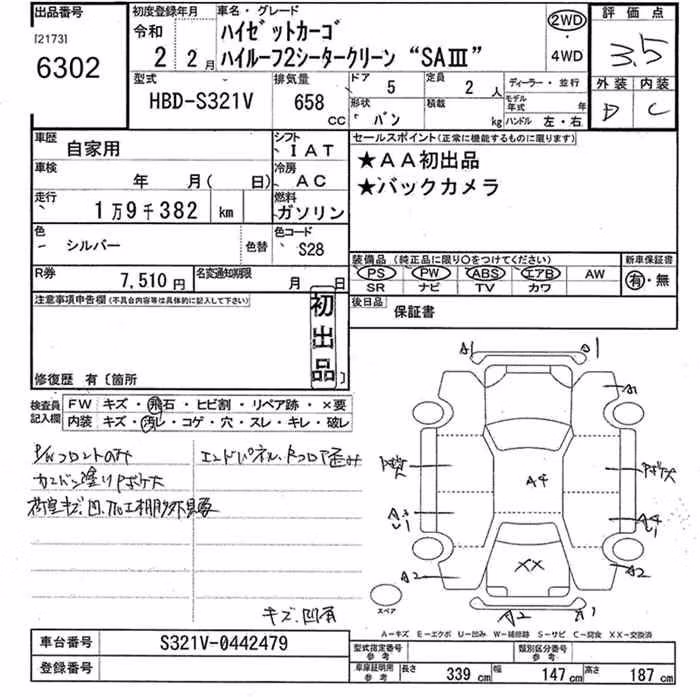 出品番号
[2173]
6302
初度登録年月
令和
2 2月
車名・グレード
ハイゼットカーゴ
ハイルーフ2シータークリーン “SAⅢ”
2WD
・
4WD
評価点
3.5
外装 内装
D C
型式
HBD-S321V
排気量
658
CC
ドア 5
定員 2 人
形状 バン
積載 kg
ディーラー・並行
モデル年式 年
ハンドル 左・右
車歴 自家用
シフト IAT
車検 年 月( 日)
冷房 AC
走行 1万9千382 km
燃料 ガソリン
色 シルバー 色替
色コード S28
R券 7,510円
名変通知期限 月 日
セールスポイント(正常に機能するものに限ります)
★AA初出品
★バックカメラ
装備品 (純正品に限り○をつけてください)
PS PW ABS エアB AW
SR ナビ TV カワ
新車保証書
有・無
後日品 保証書
注意事項申告欄(不具合内容等は具体的に記入して下さい)
初出品
修復歴 有〔箇所
検査員記入欄
FW キズ・飛石・ヒビ割・リペア跡・×要
内装 キズ・汚レ・コゲ・穴・スレ・キレ・破レ
P/Wフロントのみ
カンバン塗りPボケ大
荷室キズ、凹、加工棚外
エンドパネル、Rフロア歪み
キズ、凹有
A1
A1
A4
A4
XX
A2
A2
A2
A1
スペア
A-キズ E-エクボ U-凹み W-補修跡 S-サビ C-腐食 XX-交換済
車台番号 S321V-0442479
登録番号
型式指定番号 参考
類別区分番号 参考
車庫証明用 参考 長さ 339 cm 幅 147 cm 高さ 187 cm